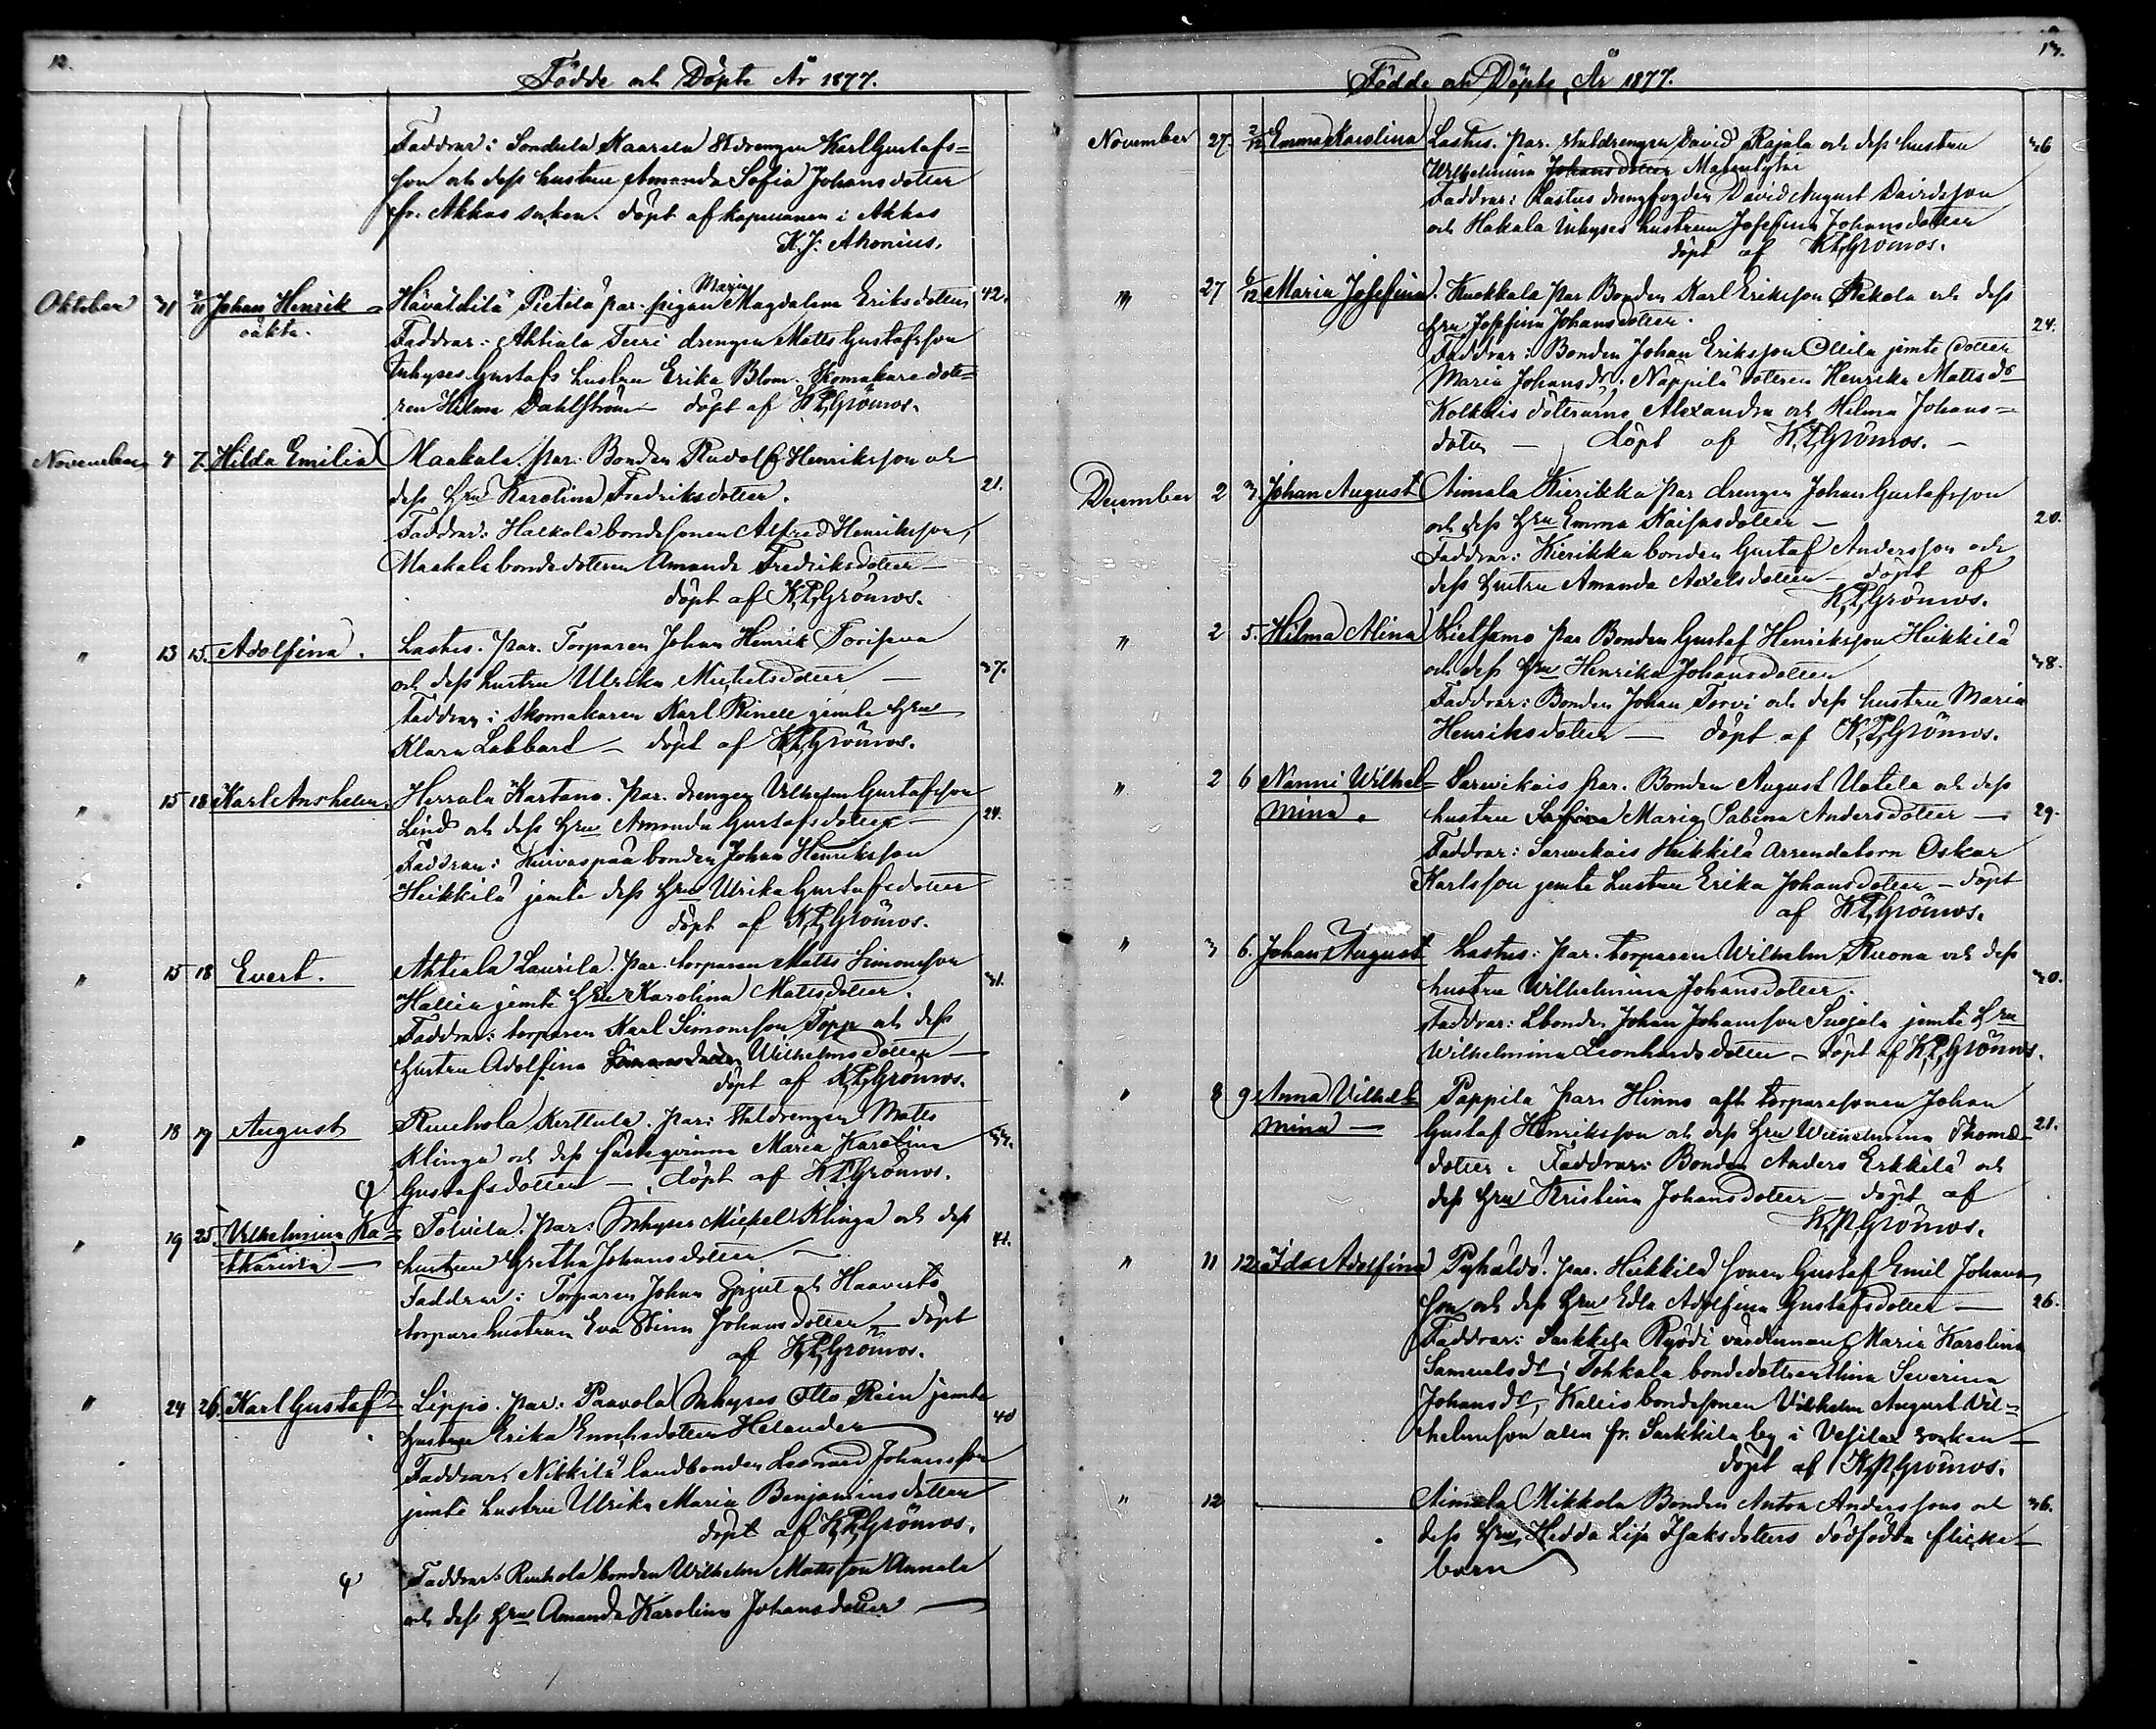 12.
Födde och Döpte År 1877.
Faddrar: Sondula Kaarela Stdrengen Karl Gustafs=
son och dess hustru Amanda Sofia Johansdotter
fr. Akkas socken. döpt af kapellanen i Akkas
K. J. Ahonius.
Oktober 31 4/11 Johan Henrik oäkta. Maria 42.
Pietilä par. pigan Magdalena Eriksdotter
Faddrar: Ahtiala Teeri drengen Matts Gustafsson
Inhyses Gustafs hustru Erika Blom. Skomakaredott=
ren Hilma Dahlström – döpt af K,P,Grönros.
November 4 7. Hilda Emilia Maakala. par: Bonden Rudolf Henriksson och 21.
dess Hru Karolina Fredriksdotter.
Faddrar: Halkola bondesonen Alfred Henriksson,
Maakala bondedottren Amanda Fredriksdotter –
döpt af K,P,Grönros.
" 13 15. Adolfina. Lastus. par. Torparen Johan Henrik 37.
och dess hustru Ulrika Michelsdotter –
Faddrar: Skomakaren Karl Rinell jemte Hru
Klara Labbart – döpt af K,P,Grönros.
" 15 18 Karl Anshelm. Herrala Kartano. par. drengen Vilhelm Gustafsson 24.
Lind och dess Hru Amanda Gustafsdotter –
Faddrar: Kuivaspää bonden Johan Henriksson
Heikkilä jemte dess Hru Ulrika Gustafsdotter
döpt af K,P,Grönros.
" 15 18 Evert. Ahtiala Laurila. par. torparen Matts Simonsson 31.
Hallia jemte Hru Karolina Mattsdotter.
Faddrar: torparen Karl Simonsson Topp och dess
Hustru Adolfina Wilhelmsdotter –
döpt af K,P,Grönros.
" 18 19 August Ruuhola Kerttula. par: Stdrengen Matts
Klinga och dess fästeqvinna Maria Karolina
Gustafsdotter – döpt af K,P,Grönros.
" 19 25 Vilhelmina Ka= Tolvila. par: Inhyses Mickel Klinga och dess 41.
tharina – hustru Gretha Johansdotter –
Faddrar: Torparen Johan Spjut och Haavisto
torpare hustrun Eva Stina Johansdotter – döpt
af K,P,Grönros.
" 24 26. Karl Gustaf Lippo. par: Paavola Inhyses Otto Rein jemte 40
hustru Erika Enochsdotter Helander
Faddrar: Nikkilä landbonden Leonard Johansson
jemte hustru Ulrika Maria Benjaminsdotter
döpt af K,P,Grönros.
Faddrar: Ruuhola bonden Wilhelm Mattsson Annala
och dess Hru Amanda Karolina Johansdotter –
13.
Födde och Döpte År 1877.
November 27. 2/12 Emma Karolina Lastus. par. Stdrengen David Rajala och dess hustru 36
Wilhelmina Johansdotter
Faddrar: Lastus drengfogden David August Davidsson
och Hakala Inhyses hustrun Josefina Johansdotter
döpt af K,P,Grönros.
" 27 6/12 Maria Josefina. Kuokkala par Bonden Karl Eriksson Rekola och dess 24.
Hru Josefina Johansdotter.
Faddrar: Bonden Johan Eriksson Ollila jemte dotter
Maria Johansdr. Näppilä dotteren Henrika Mattsdr
Kolkkis döttrarne Alexandra och Hilma Johans=
dotter – döpt af K,P,Grönros. –
December 2 3. Johan August Aimala Kierikka par drengen Johan Gustafsson 20.
och dess Hru Emma Kaisasdotter –
Faddrar: Kierikka bonden Gustaf Andersson och
dess hustru Amanda Axelsdotter – döpt af
K,P,Grönros.
" 2 5. Hilma Alina Lietsamo par Bonden Gustaf Henriksson Heikkilä 38.
och dess Hru Henrika Johansdotter
Faddrar: Bonden Johan Torvi och dess hustru Maria
Henriksdotter – döpt af K,P,Grönros.
" 2 6 Nanni Wilhel= Sarwikais par. Bonden August Uotila och dess 29.
mina. hustru Maria Sabina Andersdotter –
Faddrar: Sarwikais Heikkilä Arrendatorn Oskar
Karlsson jemte hustru Erika Johansdotter – döpt
af K,P,Grönros.
" 3 6. Johan August Lastus. par. torparen Wilhelm Ruona och dess 30.
hustru Wilhelmina Johansdotter.
Faddrar: Lbonden Johan Johansson Suojala jemte Hru
Wilhelmina Leonhardsdotter – döpt af K,P,Grönros.
" 8 9 Anna Vilhel= Pappila par. Hinno torparesonen Johan 21.
mina – Gustaf Henriksson och dess Hru Wilhelmina Thomæ=
dotter. Faddrar: Bonden Anders Erkkilä och
dess Hru Kristina Johansdotter – döpt af
K,P,Grönros.
" 11 12. Ida Adolfina Pyhältö. par. Heikkilä sonen Gustaf Emil Johans= 26.
son och dess Hru Edla Adolfina Gustafsdotter –
Faddrar: Sarkkila Ryödi värdinnan Maria Karolina
Samuelsdr, Tohkala bondedotteren Elina Severina
Johansdr, Kallis bondesonen Vilhelm August Vil=
helmsson alla fr. Sarkkila by i Vesilax socken –
döpt af K,P,Grönros.
" 12 – Aimala Mikkola Bonden Anton Anderssons och 36.
dess Hru Hedda Lisa Isaksdotters dödfödda flicke=
barn